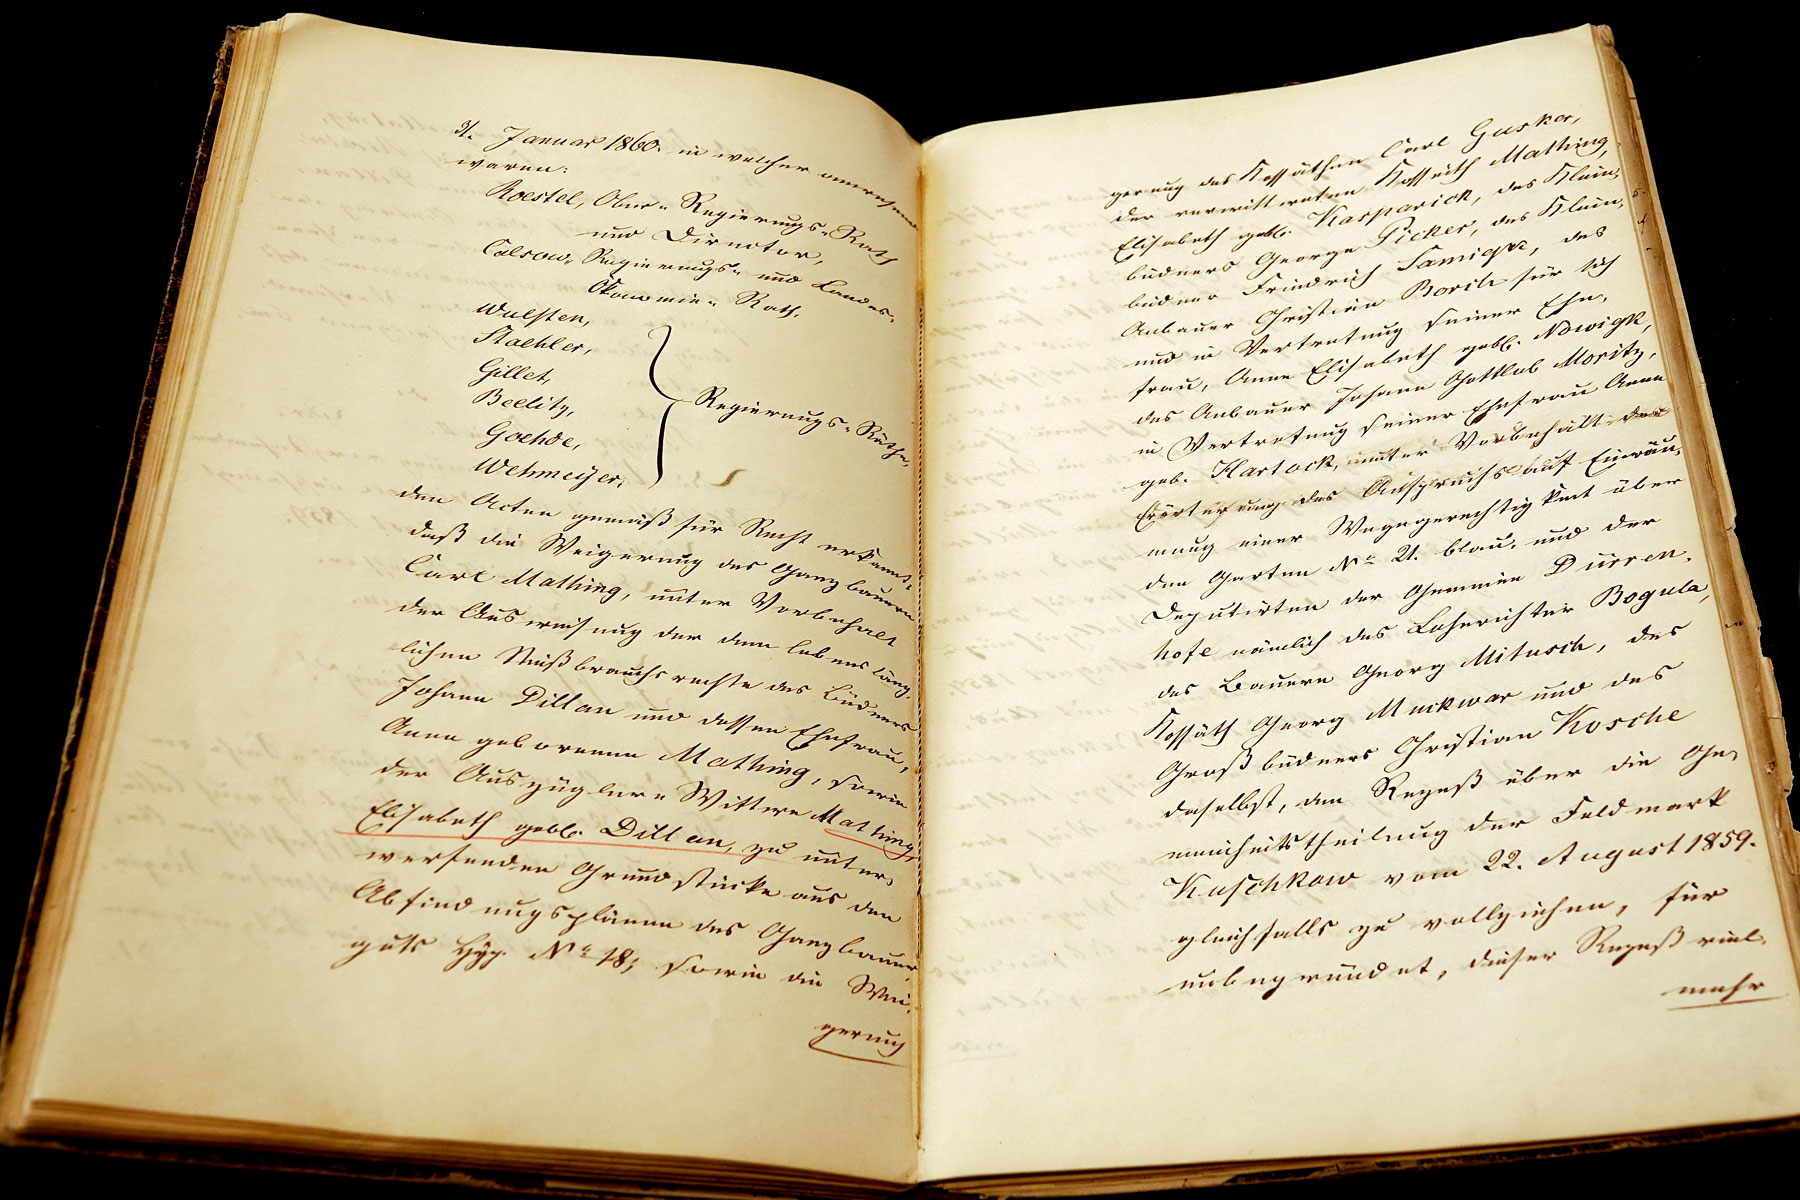 31. Januar 1860. in welcher anwesend
waren:
Roestel, Ober-Regierungs-Rath
und Director,
Colsow, Regierungs- und Landes-
Ökonomie-Rath.
Wulsten,
Staehler,
Gillet,
Beelitz,
Goehde,
Wehmeyer,
Regierungs-Räthe,
den Acten gemäß für Recht erkannt,
daß die Weigerung des Ganzbauern
Carl Mathing, unter Vorbehalt
der Ausweisung der dem lebensläng-
lichen Nießbrauchsrechte des Büdners
Johann Dillan und dessen Ehefrau,
Anna geborenen Mathing, sowie
der Auszügler-Wittwe Mathing,
Elisabeth gebl. Dillan, zu unter-
werfenden Grundstücke aus den
Abfindungsplänen des Ganzbauer-
guts Hyp. No 18; sowie die Wei-
gerung
gerung des Kossäthen Carl Gusker,
der verwittweten Kossäth Mathing,
Elisabeth gebl. Kasparick, des Klein-
büdners George Picker, des Klein-
büdner Friedrich Samigk, des
Anbauer Christian Borch für sich
und in Vertretung seiner Ehe-
frau, Anne Elisabeth gebl. Nowigk,
des Anbauer Johann Gottlob Moritz,
in Vertretung seiner Ehefrau Anna
geb. Hartock, unter Vorbehalt der
Erörterung des Anspruchs auf Einräu-
mung einer Wegegerechtigkeit über
den Garten No 21. blau, und der
Deputirten der Gemeine Dürren-
hofe nämlich des Lehnrichter Bogula,
des Bauern Georg Mitusch, des
Kossäth Georg Muckwar und des
Großbüdners Christian Kosche
daselbst, den Rezeß über die Ge-
meinheitstheilung der Feldmark
Kuschkow vom 22. August 1859.
gleichfalls zu vollziehen, für
unbegründet, dieser Rezeß viel-
mehr